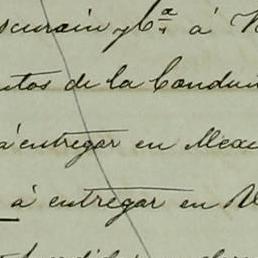 scurain y Cª á
ntos de la Condu
á entregar en Mexi
á entregar en V